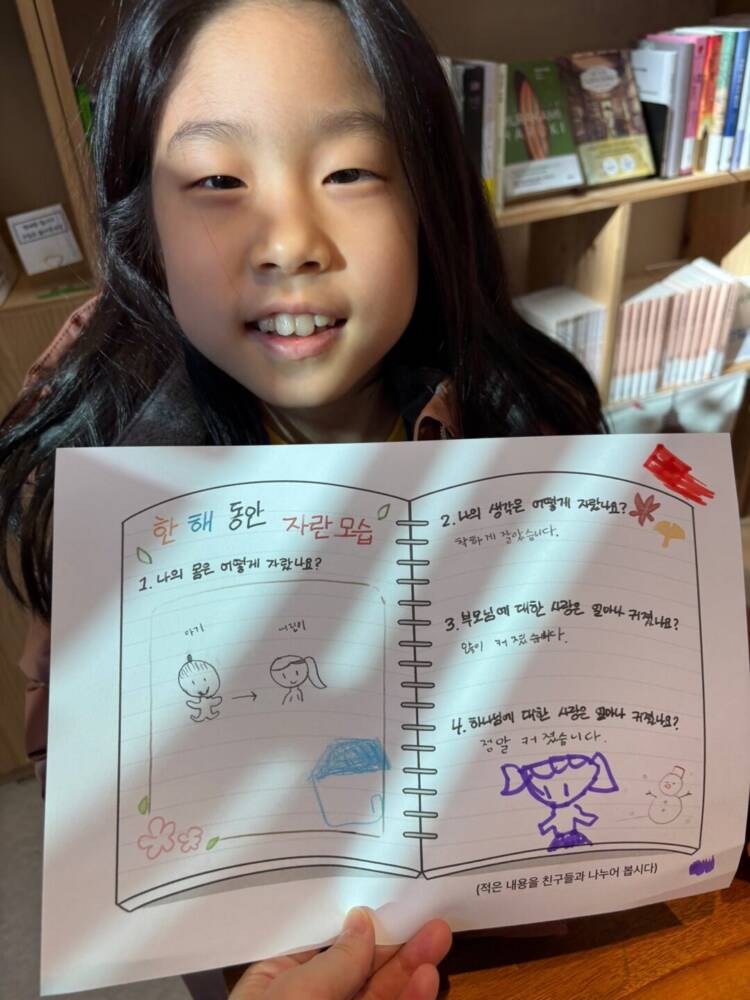 한 해 동안 자란 모습
1. 나의 몸은 어떻게 자랐나요?
아기
어린이
2. 나의 생각은 어떻게 자랐나요?
착하게 잘았습니다.
3. 부모님에 대한 사랑은 얼마나 커졌나요?
많이 커졌습니다.
4. 하나님에 대한 사랑은 얼마나 커졌나요?
정말 커졌습니다.
(적은 내용을 친구들과 나누어 봅시다)